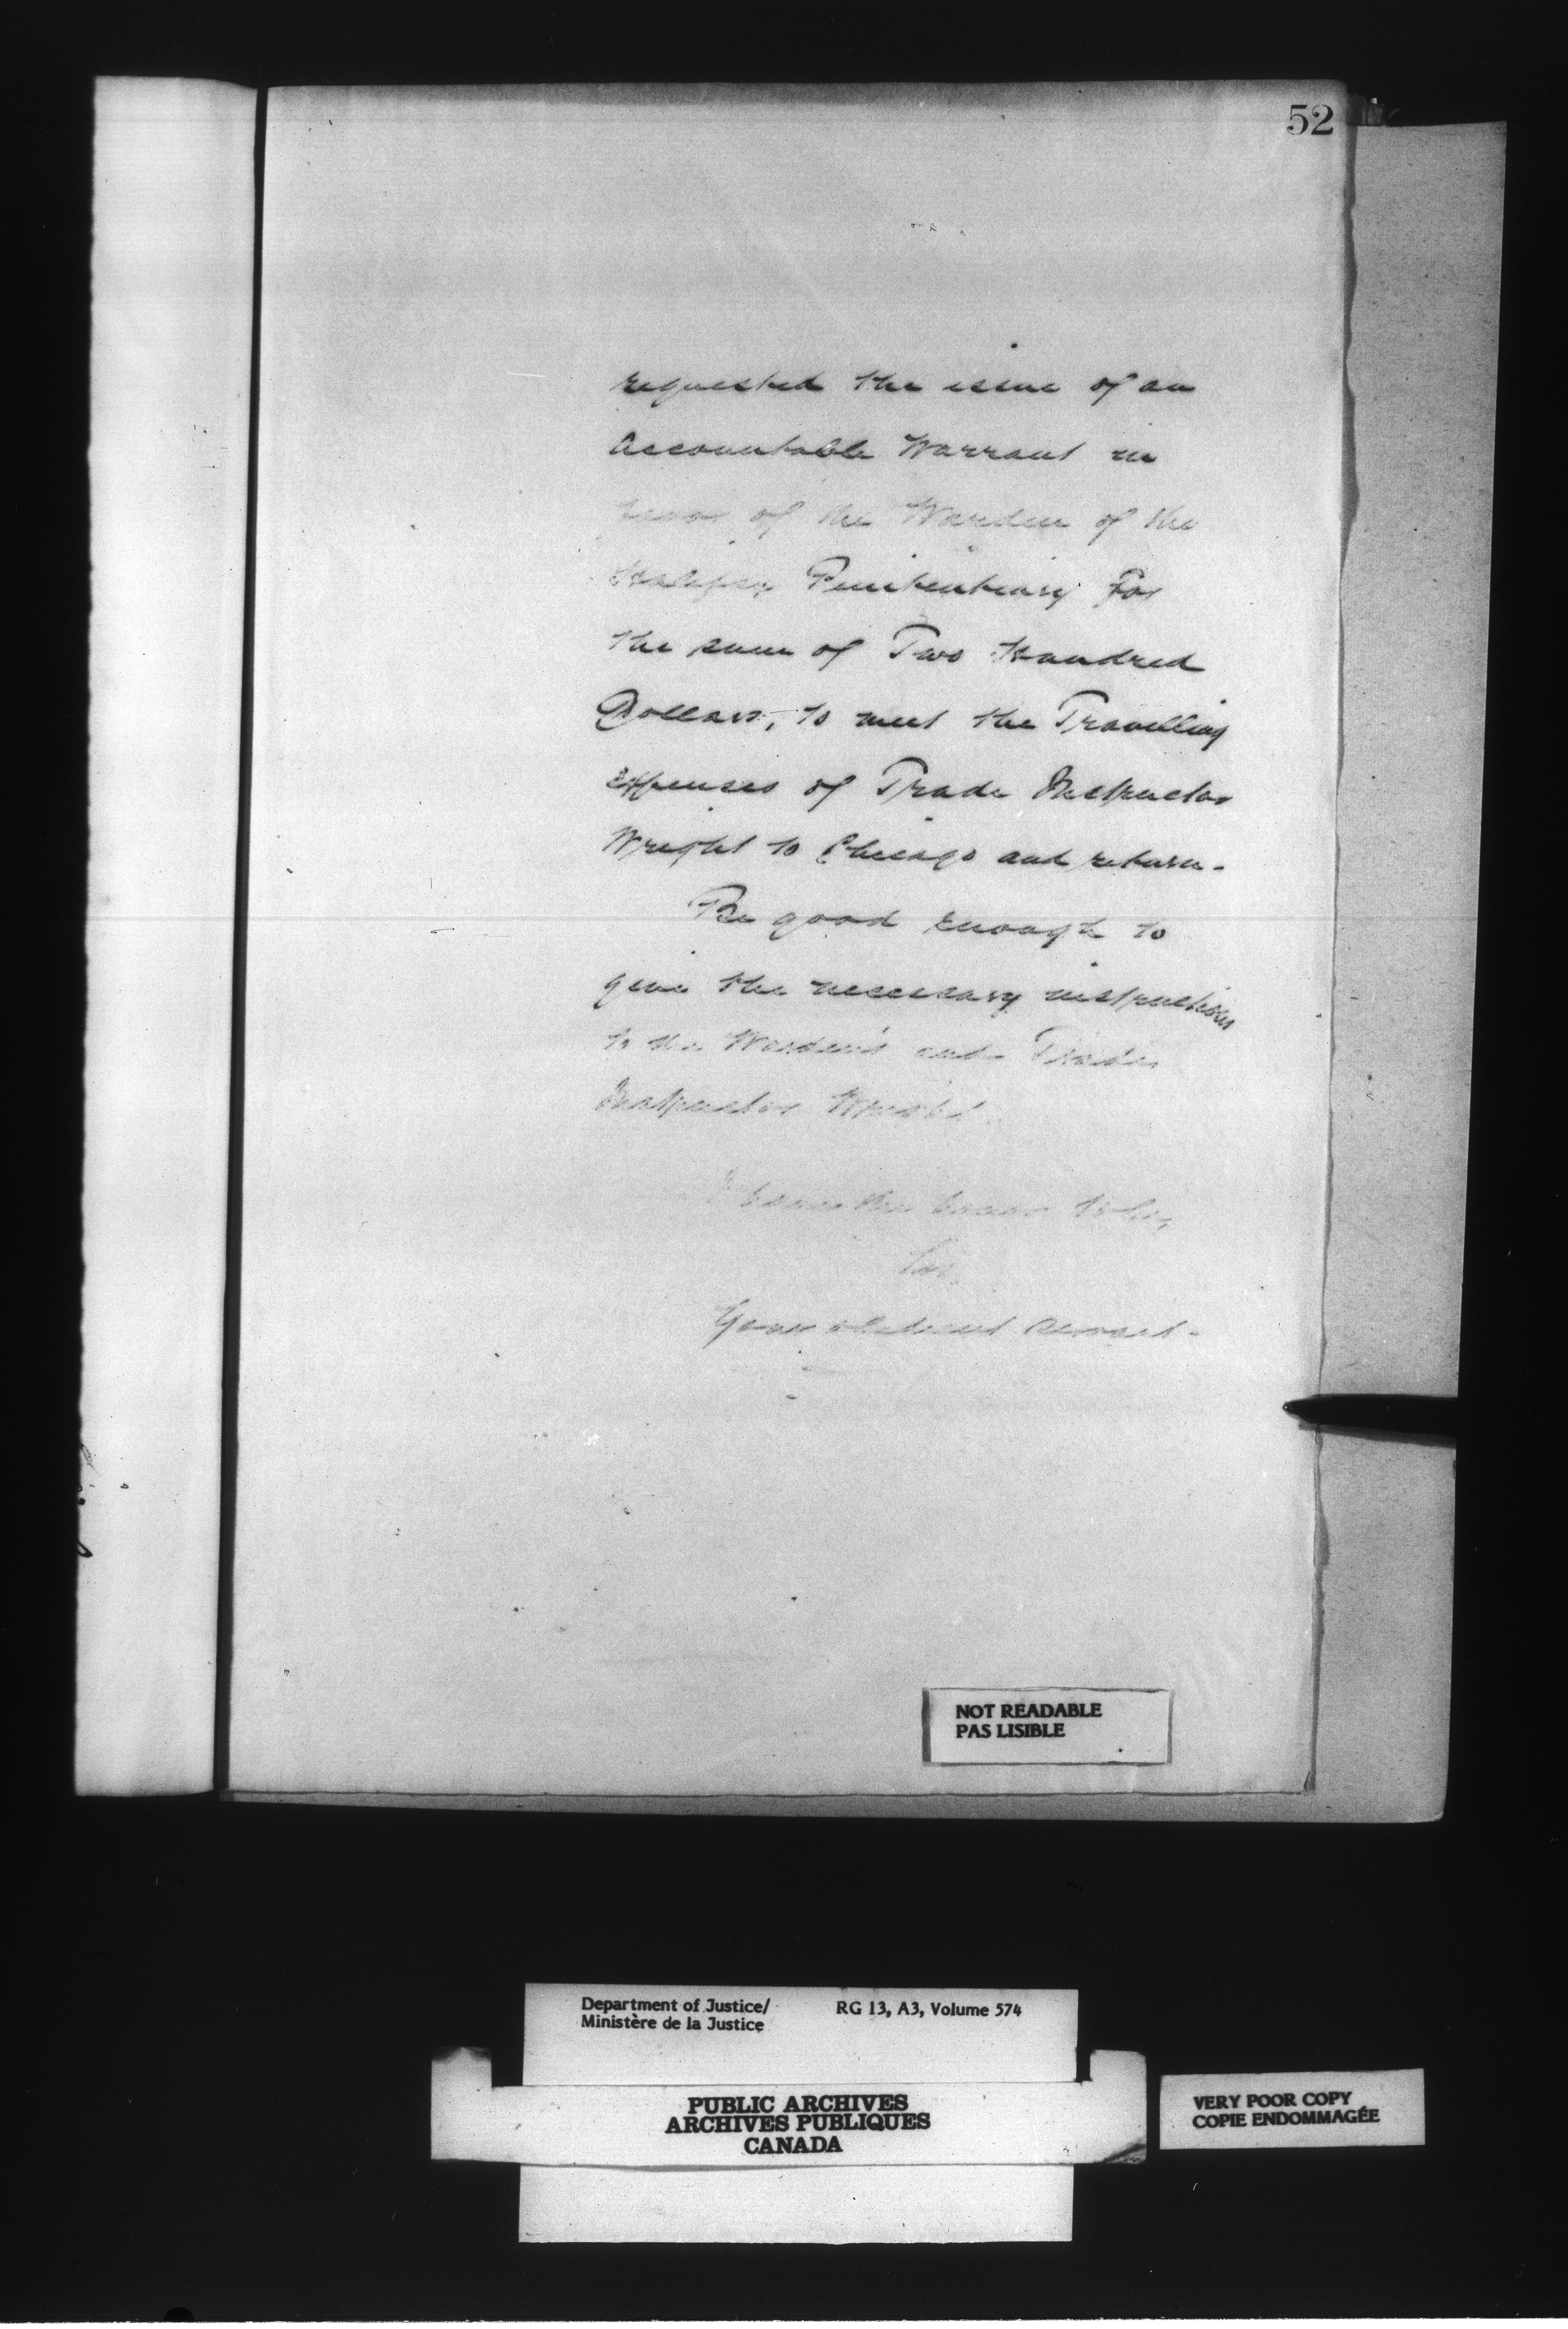 52
requested the issue of an
Accountable Warrant in
favor of the Warden of the
Halifax Penitentiary for
the sum of Two Hundred
Dollars, to meet the Travelling
expenses of Trade Instructor
Wright to Chicago and return.
Be good enough to
give the necessary instructions
to the Warden and Trade
Instructor Wright.
I have the honor to be,
Sir,
Your obedient servant.
NOT READABLE
PAS LISIBLE
Department of Justice/ RG 13, A3, Volume 574
Ministère de la Justice
PUBLIC ARCHIVES
ARCHIVES PUBLIQUES
CANADA
VERY POOR COPY
COPIE ENDOMMAGÉE